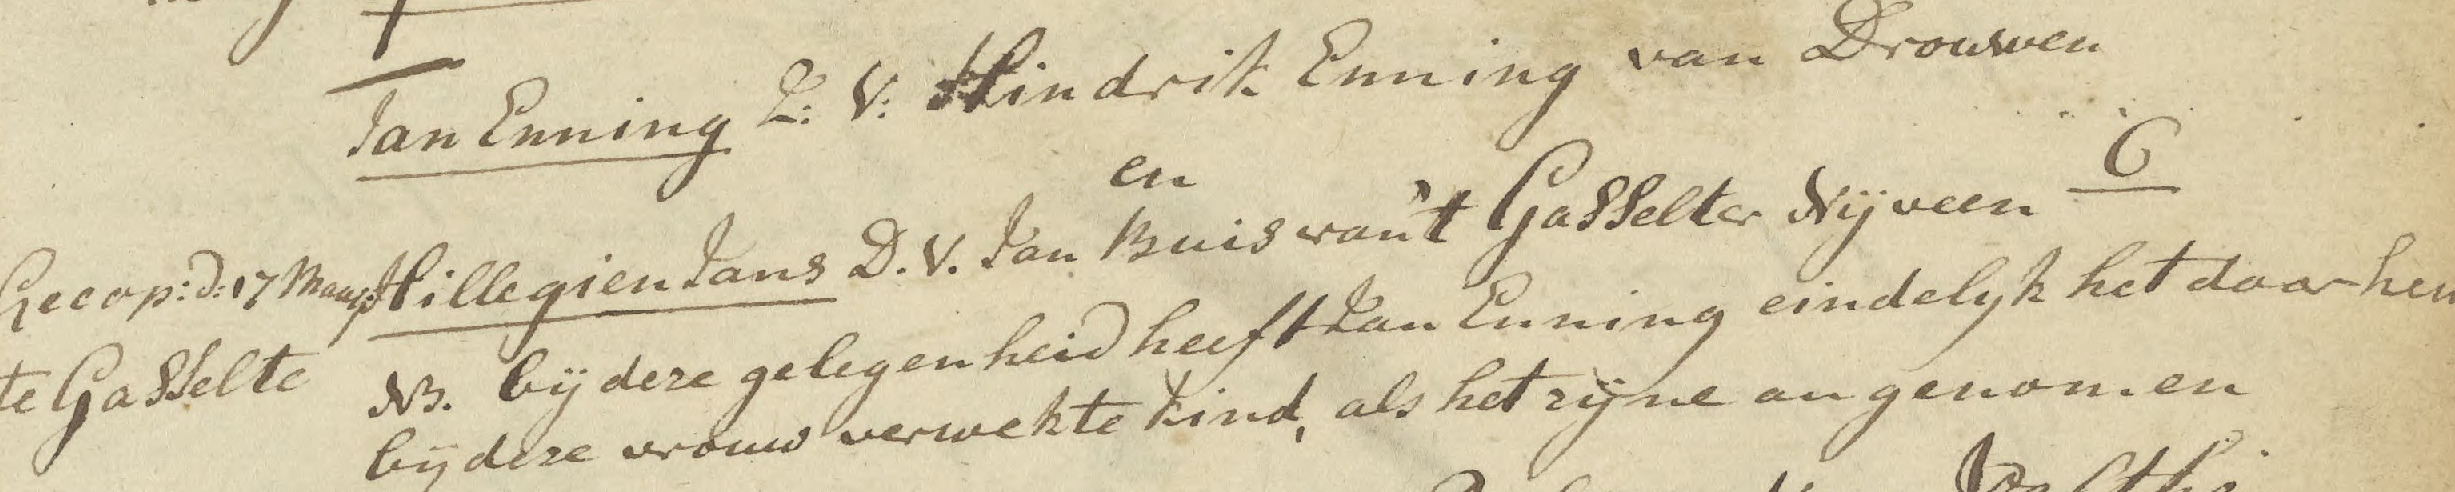 Jan Enning Z: V: Hindrik Enning van Drouwen
en
Hillegien Jans D. V. Jan Buis van 't Gasselter Nijveen C
Gecop: d: 17 Maart
te Gasselte
NB. bij deze gelegenheid heeft Jan Enning eindelyk het daar hem
bij deze vrouw verwekte kind, als het zijne angenomen